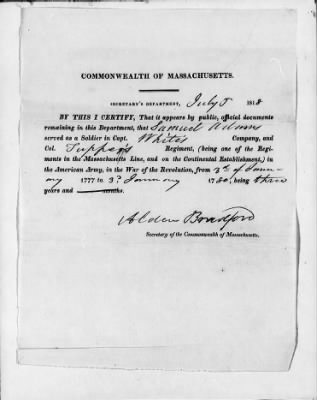 COMMONWEALTH OF MASSACHUSETTS.
SECRETARY'S DEPARTMENT, July 5 1818
BY THIS I CERTIFY, That it appears by public, official documents
remaining in this Department, that Samuel Adams
served as a Soldier in Capt. Whites Company, and
Col. Tuppers Regiment, (being one of the Regi-
ments in the Massachusetts Line, and on the Continental Establishment,) in
the American Army, in the War of the Revolution, from 3d of Janu-
ary 1777 to 3d January 1780, being three
years and months.
Alden Bradford
Secretary of the Commonwealth of Massachusetts.